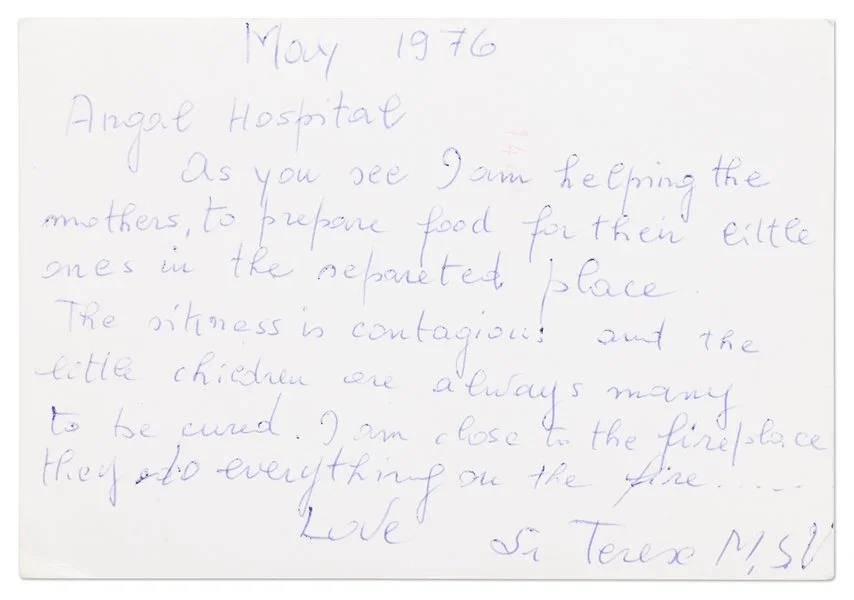 May 1976
Angal Hospital
As you see I am helping the
mothers, to prepare food for their little
ones in the separeted place.
The sikness is contagious and the
little children are always many
to be cured. I am close to the fireplace
they do everything on the fire......
Love Sr Teresa M, SV